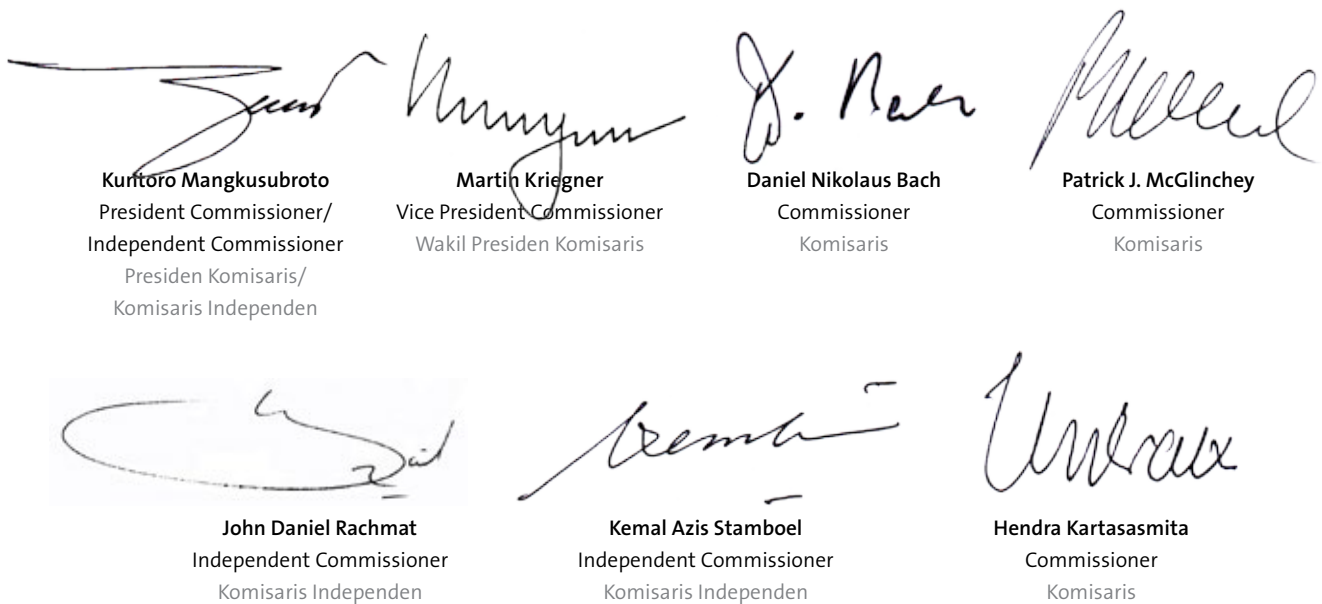 Kuntoro Mangkusubroto
President Commissioner/
Independent Commissioner
Presiden Komisaris/
Komisaris Independen
Martin Kriegner
Vice President Commissioner
Wakil Presiden Komisaris
D. Bach
Daniel Nikolaus Bach
Commissioner
Komisaris
Patrick J. McGlinchey
Commissioner
Komisaris
John Daniel Rachmat
Independent Commissioner
Komisaris Independen
Kemal Azis Stamboel
Independent Commissioner
Komisaris Independen
Hendra Kartasasmita
Commissioner
Komisaris